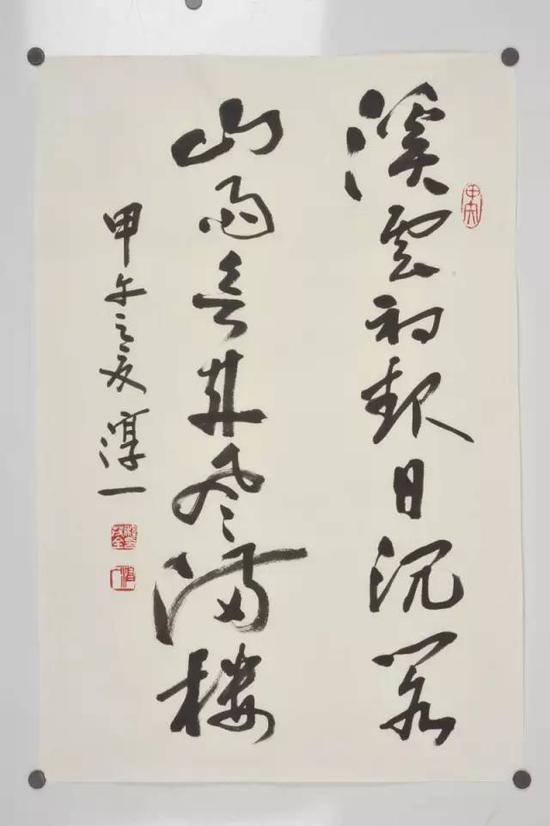 溪雲初起日沉閣
山雨欲來風滿樓
甲午之夏 淳一
甲午